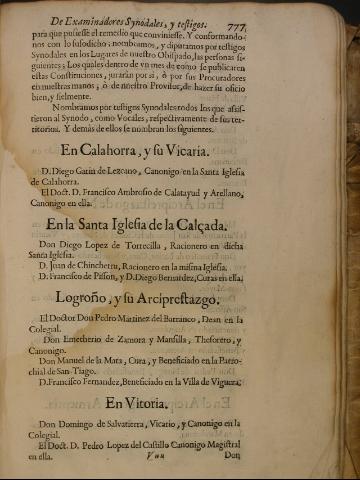 De Examinadores Synodales, y testigos. 777
para que pusiesse el remedio que conviniesse. Y conformando-
nos con lo susodicho: nombramos, y diputamos por testigos
Synodales en los Lugares de nuestro Obispado, las personas si-
guientes; Los quales dentro de vn mes de como se publicaren
estas Constituciones, juraràn por si, ò por sus Procuradores
en nuestras manos, ò de nuestro Provisor, de hazer su oficio
bien, y fielmente.
Nombramos por testigos Synodales todos los que assis-
tieron al Synodo, como Vocales, respectivamente de sus ter-
ritorios. Y demàs de ellos se nombran los siguientes.
En Calahorra, y su Vicaria.
D. Diego Garin de Lezcano, Canonigo en la Santa Iglesia
de Calahorra.
El Doct. D. Francisco Ambrosio de Calatayud y Arellano,
Canonigo en ella.
En la Santa Iglesia de la Calçada.
Don Diego Lopez de Torrecilla, Racionero en dicha
Santa Iglesia.
D. Juan de Chinchetru, Racionero en la misma Iglesia.
D. Francisco de Pisson, y D. Diego Bernardez, Curas en ella.
Logroño, y su Arciprestazgo.
El Doctor Don Pedro Martinez del Barranco, Dean en la
Colegial.
Don Emetherio de Zamora y Mansilla, Thesorero, y
Canonigo.
Don Manuel de la Mata, Cura, y Beneficiado en la Parro-
chial de San-Tiago.
D. Francisco Fernandez, Beneficiado en la Villa de Viguera.
En Vitoria.
Don Domingo de Salvatierra, Vicario, y Canonigo en la
Colegial.
El Doct. D. Pedro Lopez del Castillo Canonigo Magistral
en ella. Vuu Don